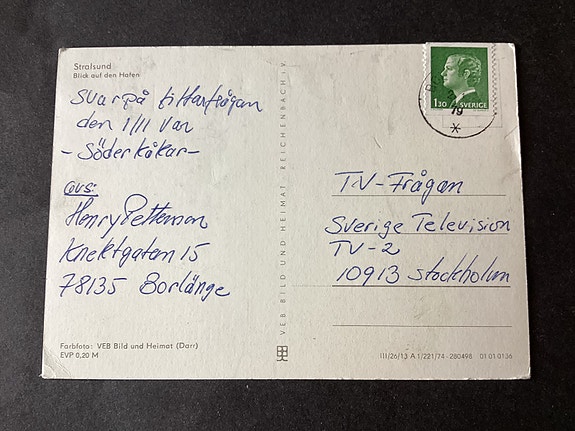 Stralsund
Blick auf den Hafen
Svar på tittarfrågan
den 1/11 var
-Söderkåkar-
avs:
Henry Pettersson
Knektgatan 15
78135 Borlänge
Farbfoto: VEB Bild und Heimat (Darr)
EVP 0,20 M
VEB BILD UND HEIMAT REICHENBACH i.V.
1.30 SVERIGE
79
TV-Frågan
Sverige Television
TV-2
10913 Stockholm
III/26/13 A 1/221/74 280498 01 01 0136